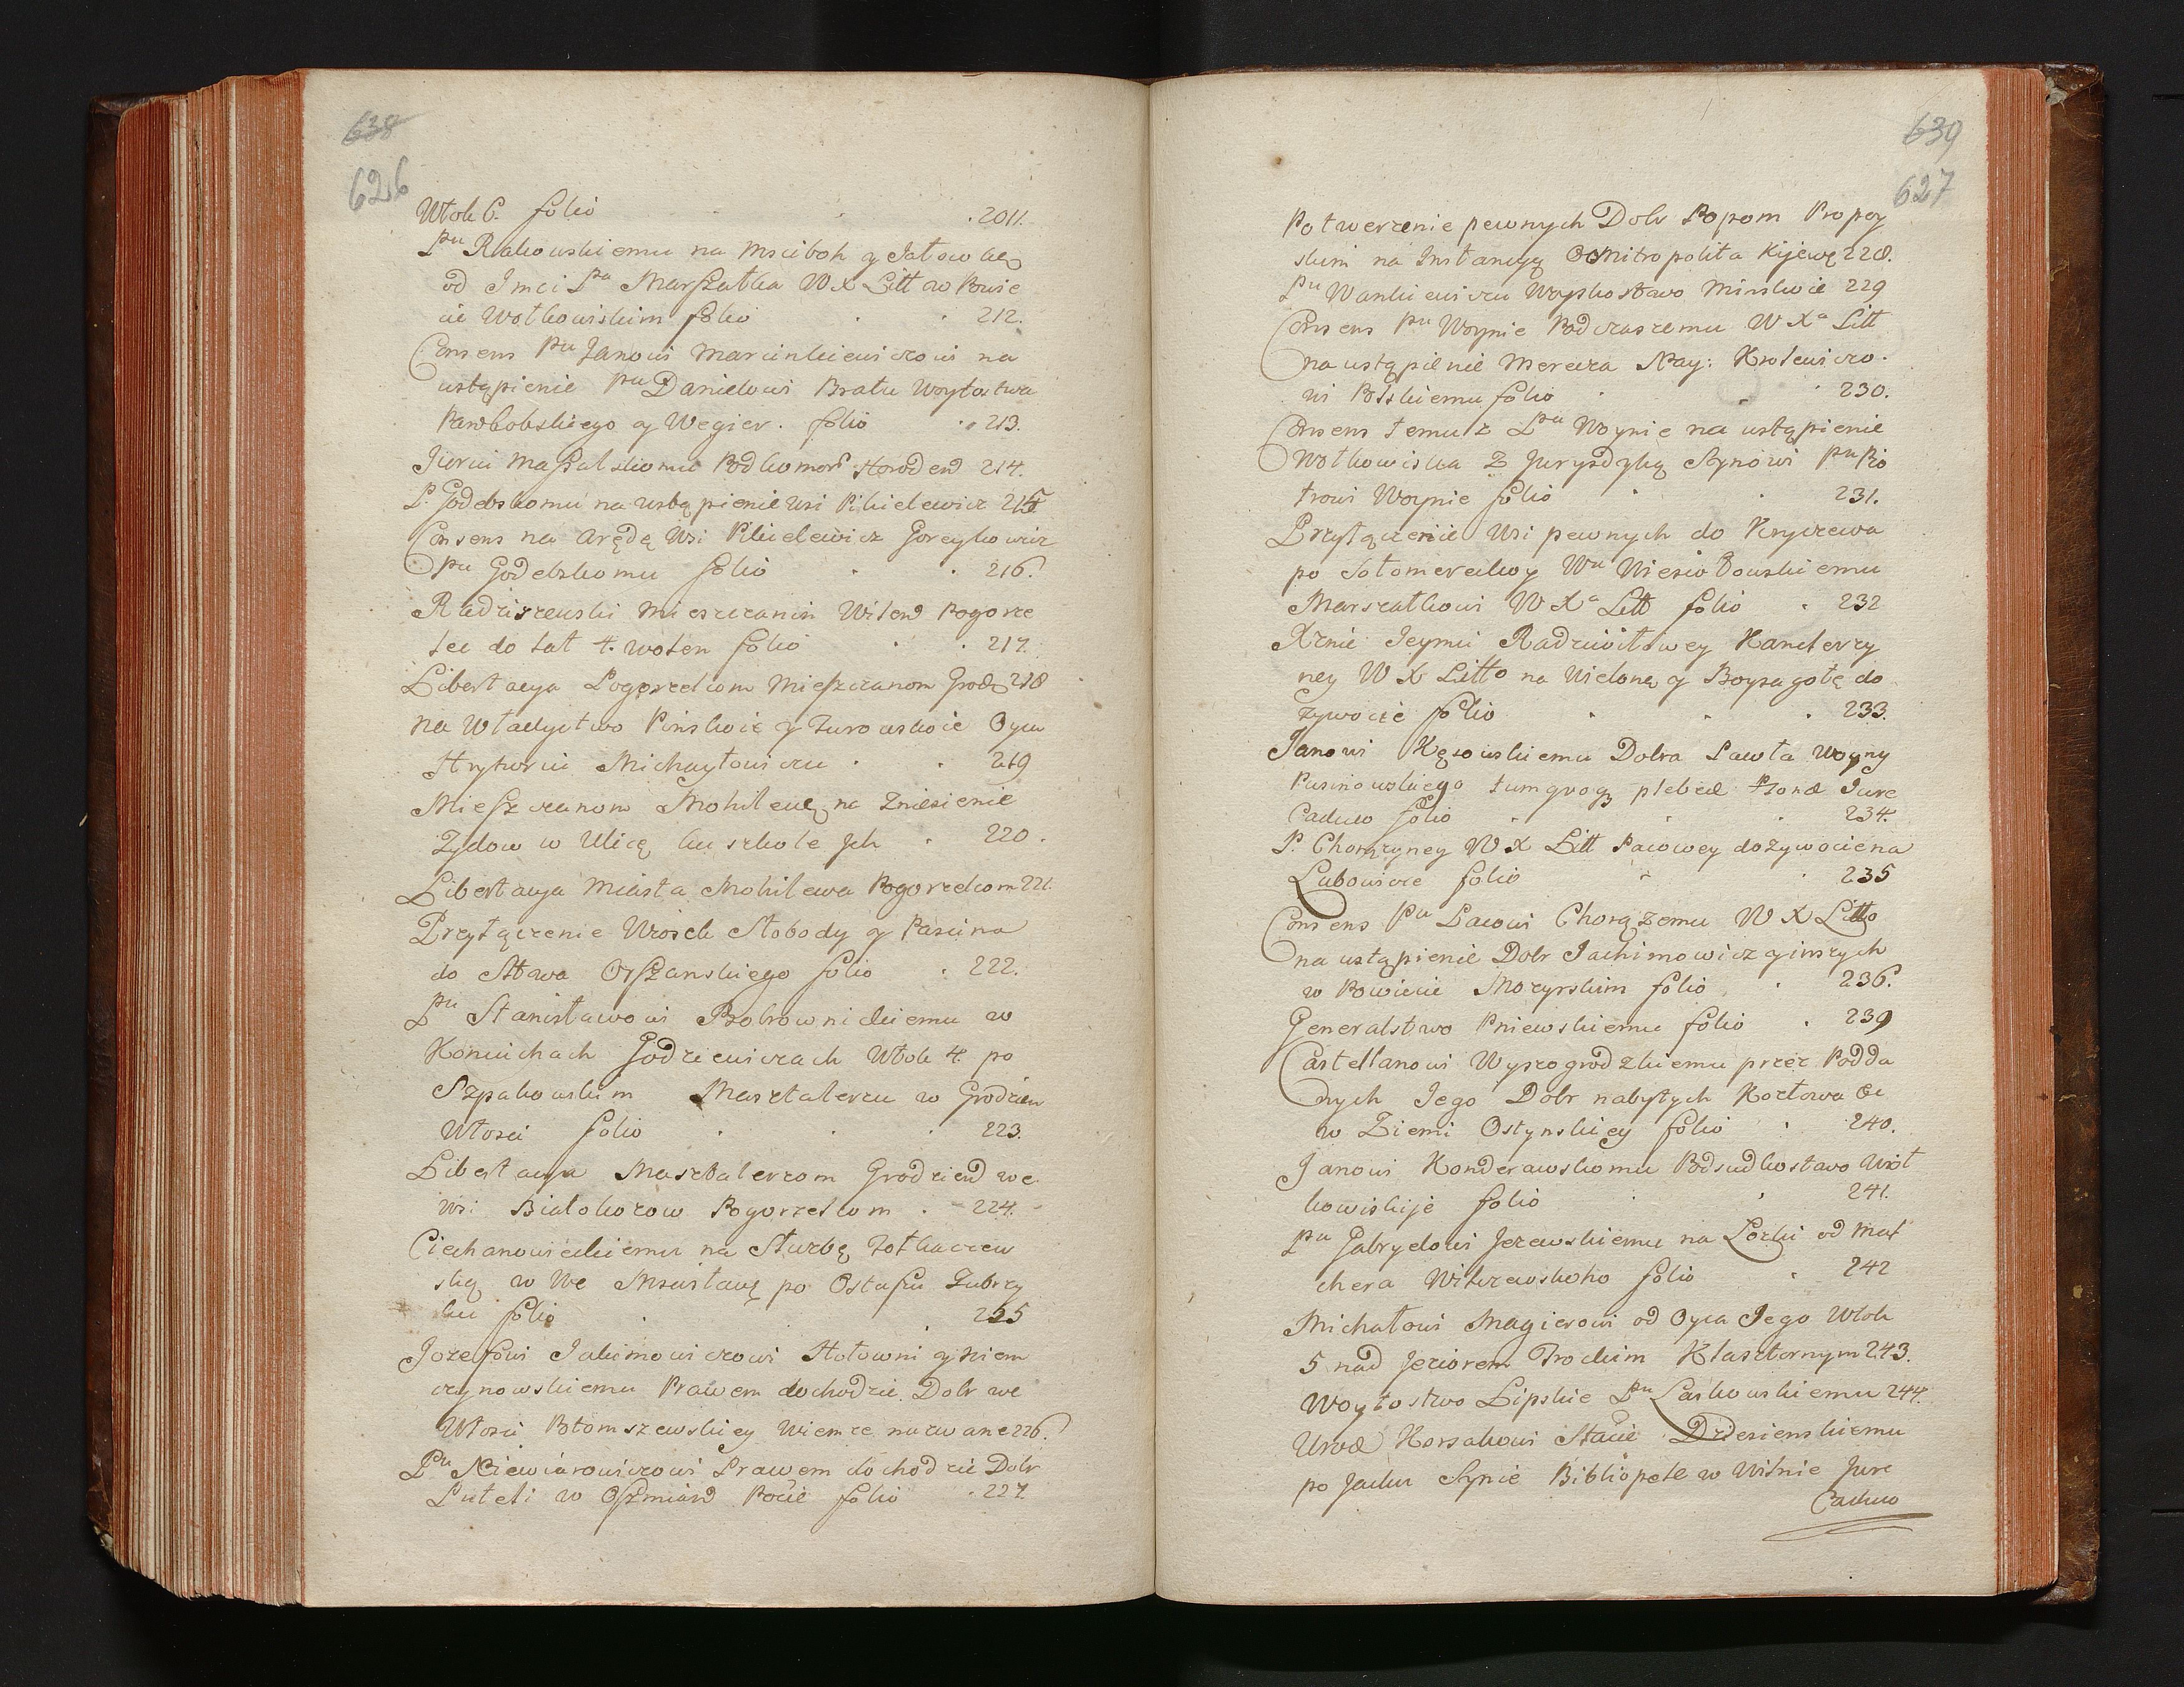 638
626
Włok 6. folio . 2011.
Pnu Rakowskiemu na Msciboh y Jatowkę
od Imci Pa Marszałka W X Litt w Powie
cie Wołkowiskim folio . . 212.
Consens Pnu Janowi Marcinkiewiczowi na
ustąpienie Pnu Danielowi Bratu Woytostwa
y Wegier. folio . 213.
Jurui Massalskomu Podkomor Horoden 214.
P. Godebskomu na ustąpienie wsi Pikielewicz 215
Consens na Arędę Wsi Pikielewicz Goreykowicz
Pnu Godebskomu folio . . 216.
Radziszewski Mieszczanin Wilen Pogorze
lec do lat 4. wolen folio . . 217.
Libertacya Pogorzelcom Mieszczanom Grod 218
Na Władyctwo Pinskoie y Turowskoie Oycu
Hryhoriu Michayłowiczu . . 219
Mieszczanom Mohilewę na Zniesienie
Zydow w Ulicę ku szkole Jch . 220.
Libertacya Miasta Mohilewa Pogorzelcom 221.
Przyłączenie Wiosek Słobody y Pasina
do Sttwa Orszanskiego folio . 222.
Pnu Stanisławowi Bobrownickiemu w
Koniuchach Godziewiczach Włok 4. po
Szpakowskim Masztalerzu w Grodzien
Włosci folio . . . 223.
Libertacya Masztalerzom Grodzien we
wsi Białokozow Pogorzelcom . 224.
Ciechanowieckiemu na Służbę
ską w We Mscisławę po Ostafiu Zubrzy
ku folio . . . 225
Jozefowi Jakimowiczowi Hołowni y Niem
czynowskiemu Prawem dochodzic Dobr we
Włosci Wiemze nazwane 226.
Pnu Niewiarowiczowi Prawem dochodzic Dobr
Luteli w Oszmian Pocie folio . 227.
639
627
Potwerzenie pewnych Dobr Popom Propoy
skim na Instancyą O Mitropolita Kijewę 228.
Pnu Wankiewiczu Woyskostwo Minskoie 229
Consens Pnu Woynie Podczaszemu W Xa Litt
na ustąpienie Merecza Nay: Krolewiczo.
wi Polskiemu folio . . 230.
Consens temuz Pnu Woynie na ustąpienie
Wołkowiska Z Jurysdyką Synowi Pnu Pio
trowi Woynie folio . . 231.
Przyłączenie Wsi pewnych do Kryczewa
po Sołomereckoy Wu Wiesiołowskiemu
Marszałkowi W Xa Litt folio . 232
Xznie Jeymci Radziwiłowey Kanclerzy
ney W X Litto na Wielonę y Boysagołę do
Zywocie folio . . . 233.
Janowi Kęsowskiemu Dobra Pawła Woyny
Pasinowskiego tumquoq plebeae Psonae Jure
Caduco folio . . . 234.
P. Chorązyney W X Litt Pacowey dozywocie na
Lubowicze folio . . 235
Consens Pnu Pacowi Chorązemu W X Litto
na ustąpienie Dobr Jachimowicz y inszych
w Powiecie Mozyrskim folio . 236.
Generalstwo Pniewskiemu folio . 239
Castellanowi Wyszogrodzkiemu przez Podda
nych Jego Dobr nabytych Kozłowa &c
w Ziemi Ostynskiey folio . 240.
Janowi Konderawskomu Podsudkostwo Woł
kowiskije folio . . 241.
Pnu Gabryelowi Jezewskiemu na Lozki od Mal
chera Wilczewskoho folio . 242
Michałowi Magierowi od Oyca Jego Włok
5 nad Jeziorem Trockim Klasztornym 243.
Woytostwo Lipskie Pnu Laskowskiemu 244.
Urod Korsakowi Stacie Dzdzienskiemu
po Jacku Synie Bibliopole w Wilnie Jure
Caduco